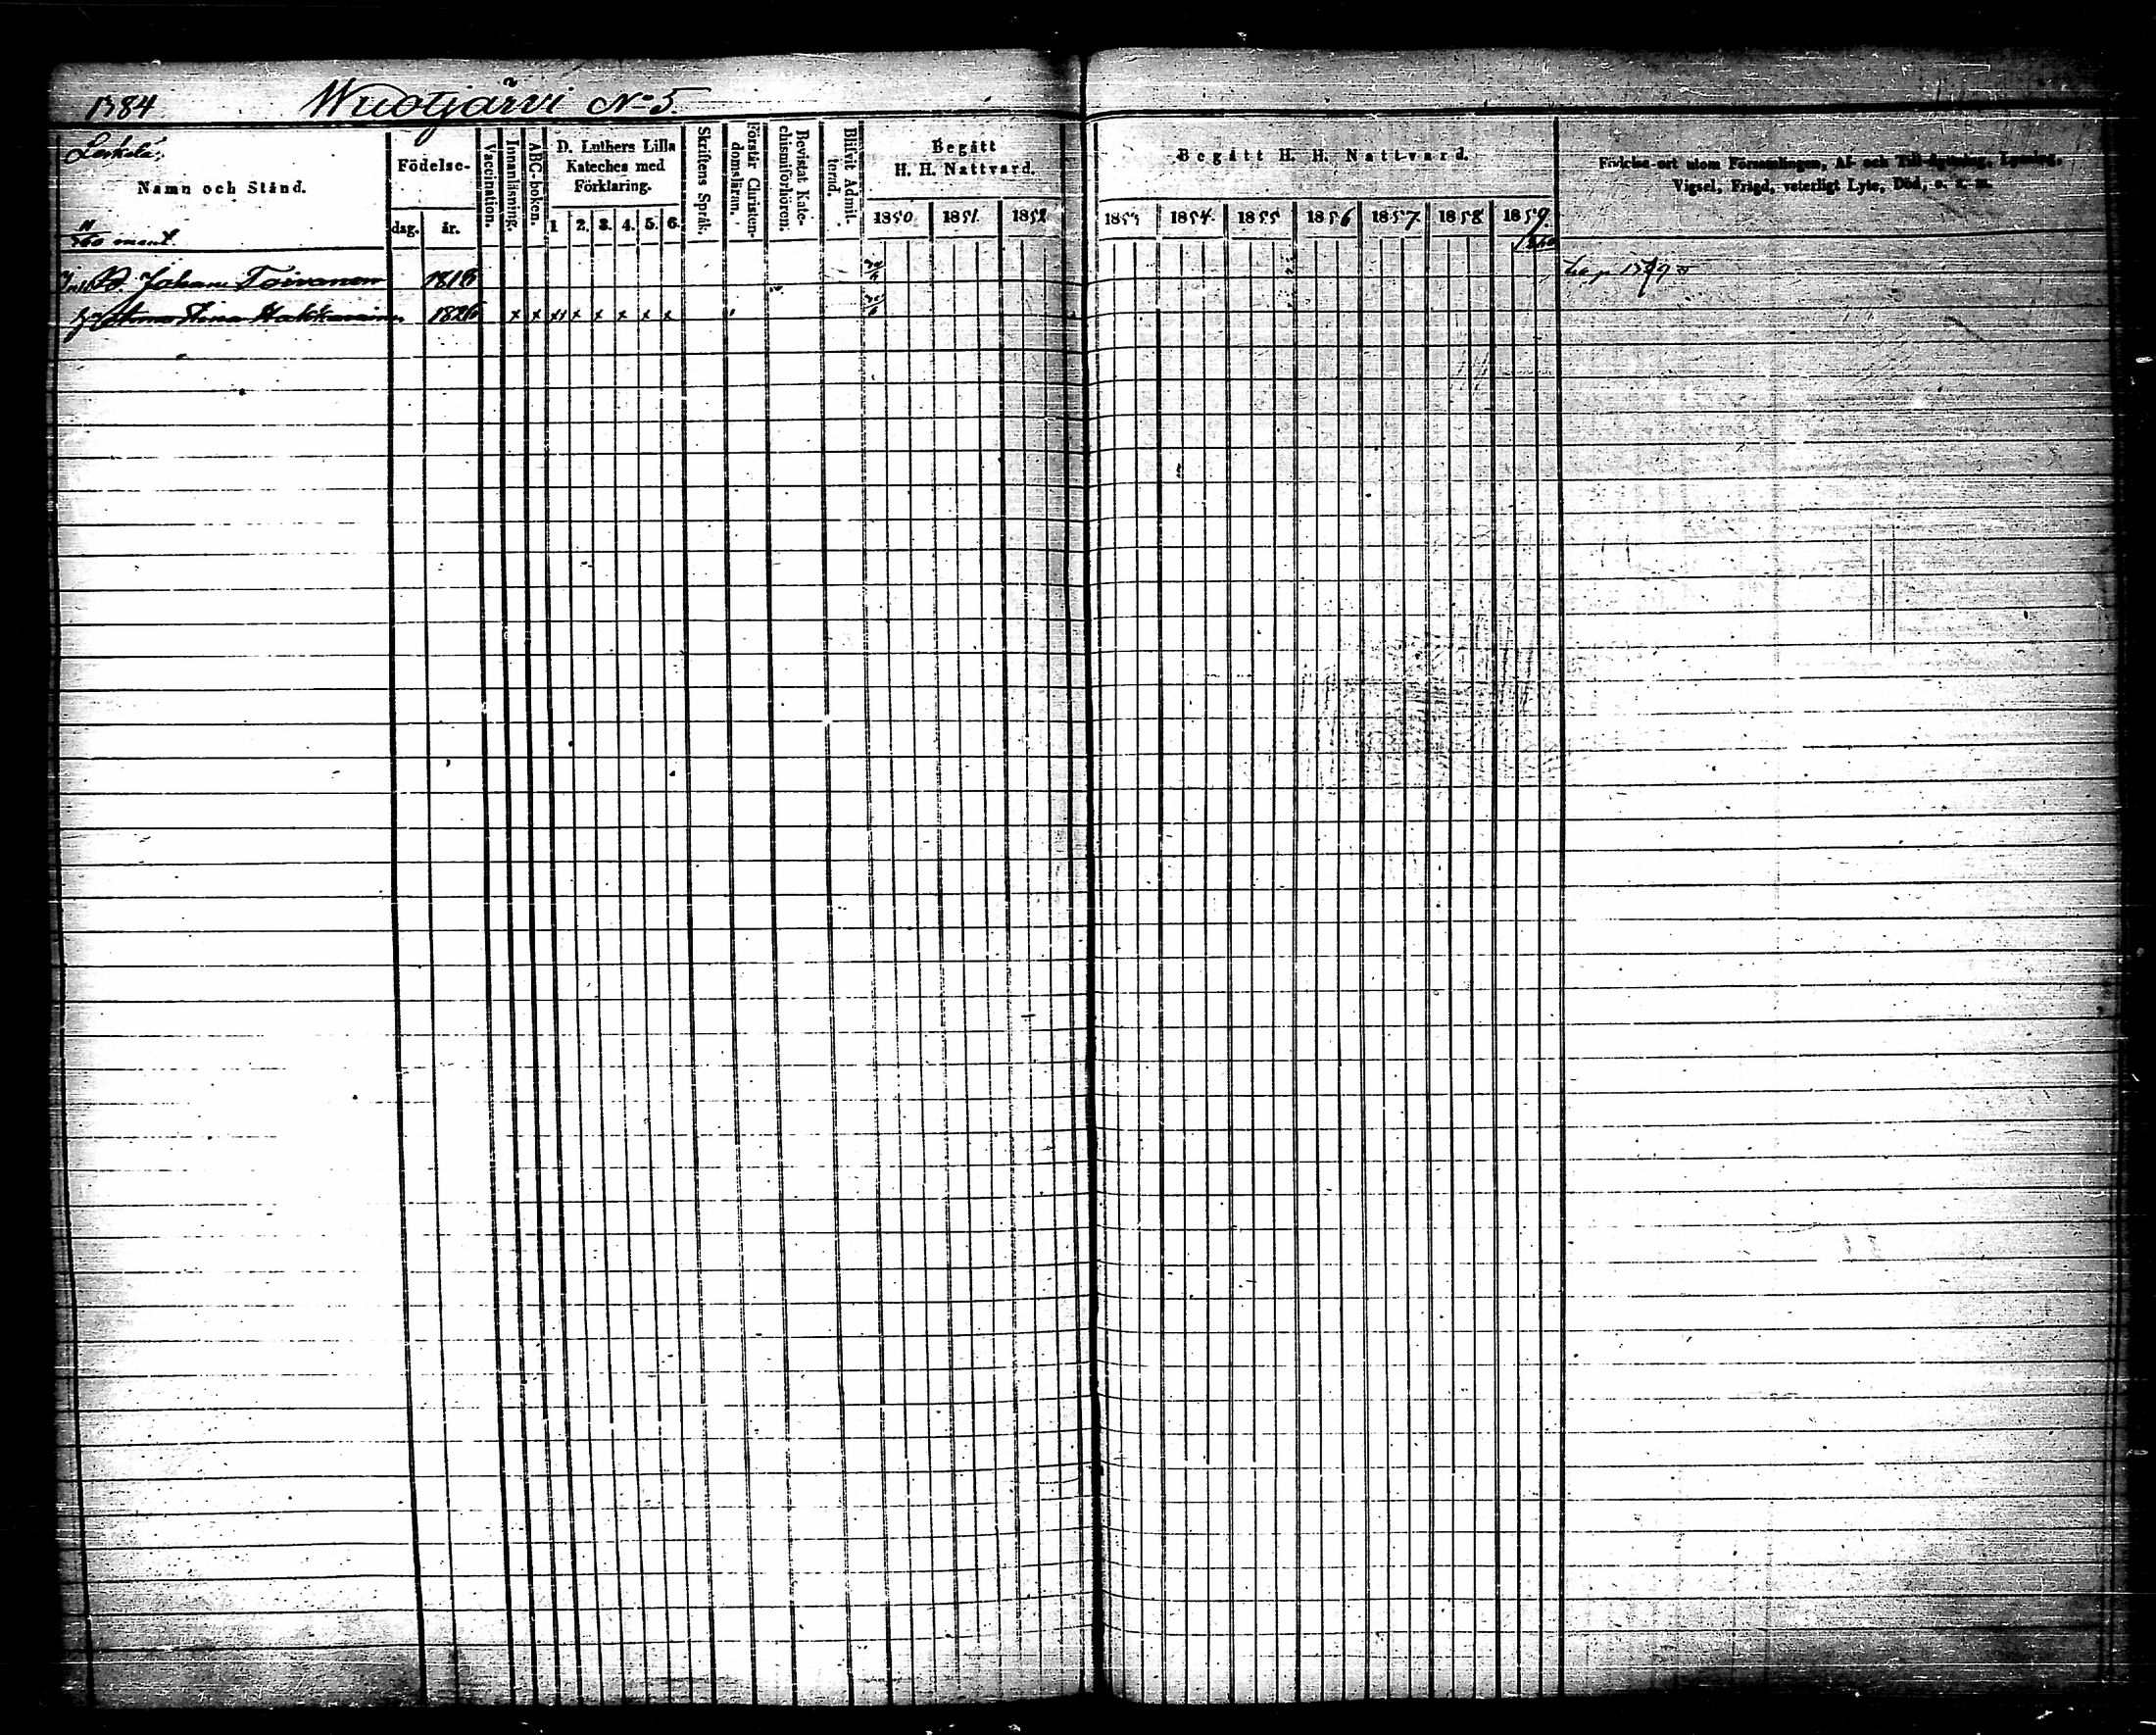 1384 Wuotjärvi No 5.
Leskelä.
Namn och Stånd.
Födelse-
dag. år.
Vaccination.
Innanläsning.
ABC-boken.
D. Luthers Lilla
Kateches med
Förklaring.
1 2. 3. 4. 5. 6.
Skriftens Språk.
Förstår Christen-
domsläran.
Bevistat Kate-
chismiförhören.
Blifvit Admit-
terad.
Begått
H. H. Nattvard.
1850 1851. 1852
Begått H. H. Nattvard.
1853 1854. 1855 1856 1857. 1858 1859.
1860
Födelse-ort utom Församlingen, Af- och Till-flyttning, Lysning,
Vigsel, Frägd, veterligt Lyte, Död, o. s. m.
mant.
Johan Toivanen 1818
Stina Hakkarainen 1826 x x x x x x x x